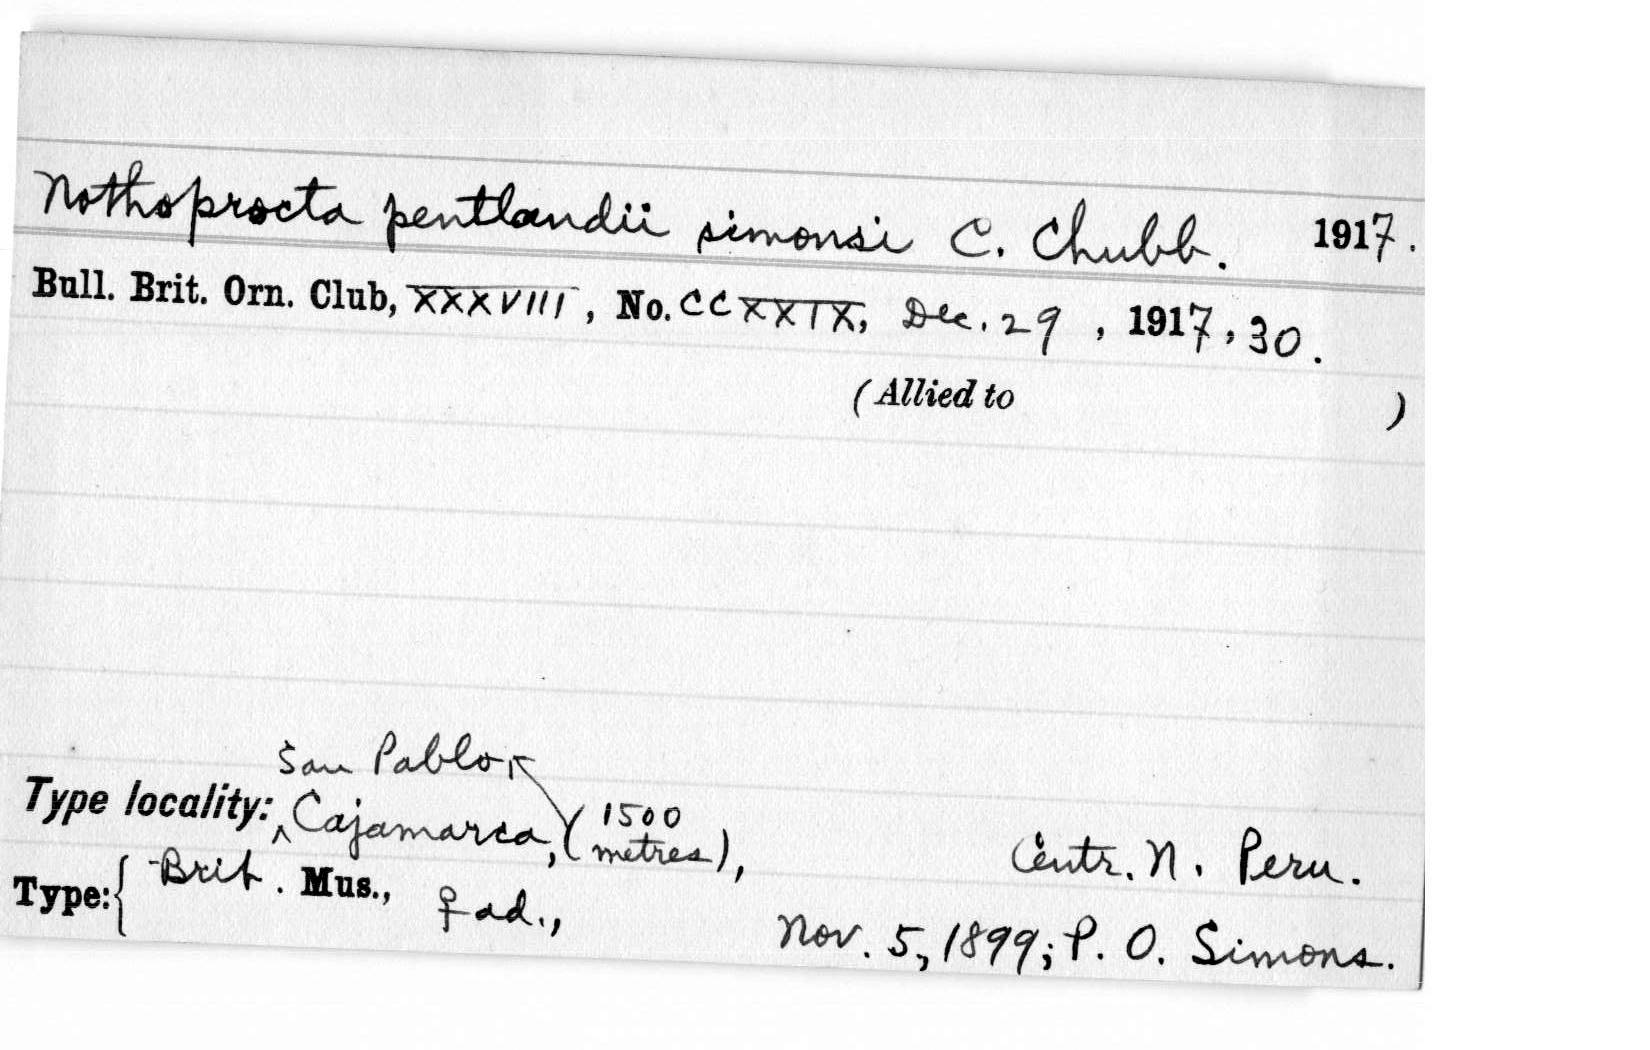 Nothoprocta pentlandii simonsi C. Chubb. 1917.
Bull. Brit. Orn. Club, XXXVIII, No. CCXXIX, Dec. 29, 1917, 30.
(Allied to )
San Pablo
Type locality: ^ Cajamarca, (1500 metres), Centr. N. Peru.
Type: { Brit. Mus., ♀ ad., Nov. 5, 1899; P. O. Simons.